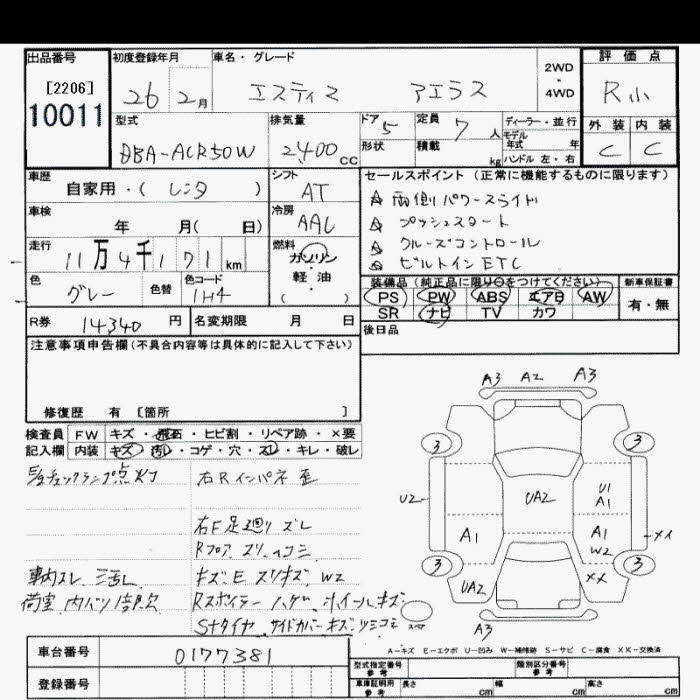 出品番号 初度登録年月 車名・グレード 2WD ・ 4WD 評価点
[2206] 26 2月 エスティマ アエラス R小
10011
型式 排気量 ドア 5 定員 7人 ディーラー・並行 外装 内装
DBA-ACR50W 2400cc 形状 積載 kg モデル年式 年 C C
ハンドル 左・右
車歴 自家用・( レンタ ) シフト AT セールスポイント (正常に機能するものに限ります)
車検 年 月( 日) 冷房 AAC 両側パワースライド
プッシュスタート
走行 11万4千171km 燃料 ガソリン・軽油・( ) クルーズコントロール
ビルトインETC
色 グレー 色替 色コード 1H4 装備品(純正品に限り○をつけてください) 新車保証書
PS PW ABS エアB AW 有・無
SR ナビ TV カワ
R券 14340円 名変期限 月 日 後日品
注意事項申告欄(不具合内容等は具体的に記入して下さい)
修復歴 有 [箇所 ]
検査員 FW キズ・飛石・ヒビ割・リペア跡・×要
記入欄 内装 キズ・汚れ・コゲ・穴・スレ・キレ・破レ
A3 A2 A3
3 3
U2 UA2 U1 A1
A1 A1 W2 メイ
3 3
UA2 XX
A3
チェックランプ点灯 右Rインパネ 歪
右F足廻り ズレ
Rフロア スリ、凹コミ
車内スレ、汚レ キズ、E スリキズ、W2
荷室、内バリ Rスポイラー ハゲ、ホイールキズ
Sナタイヤ、サイドカバーキズ
A-キズ E-エクボ U-凹み W-補修跡 S-サビ C-腐食 XX-交換済
車台番号 0177381 型式指定番号 参考 類別区分番号 参考
登録番号 車庫証明用 参考 長さ cm 幅 cm 高さ cm